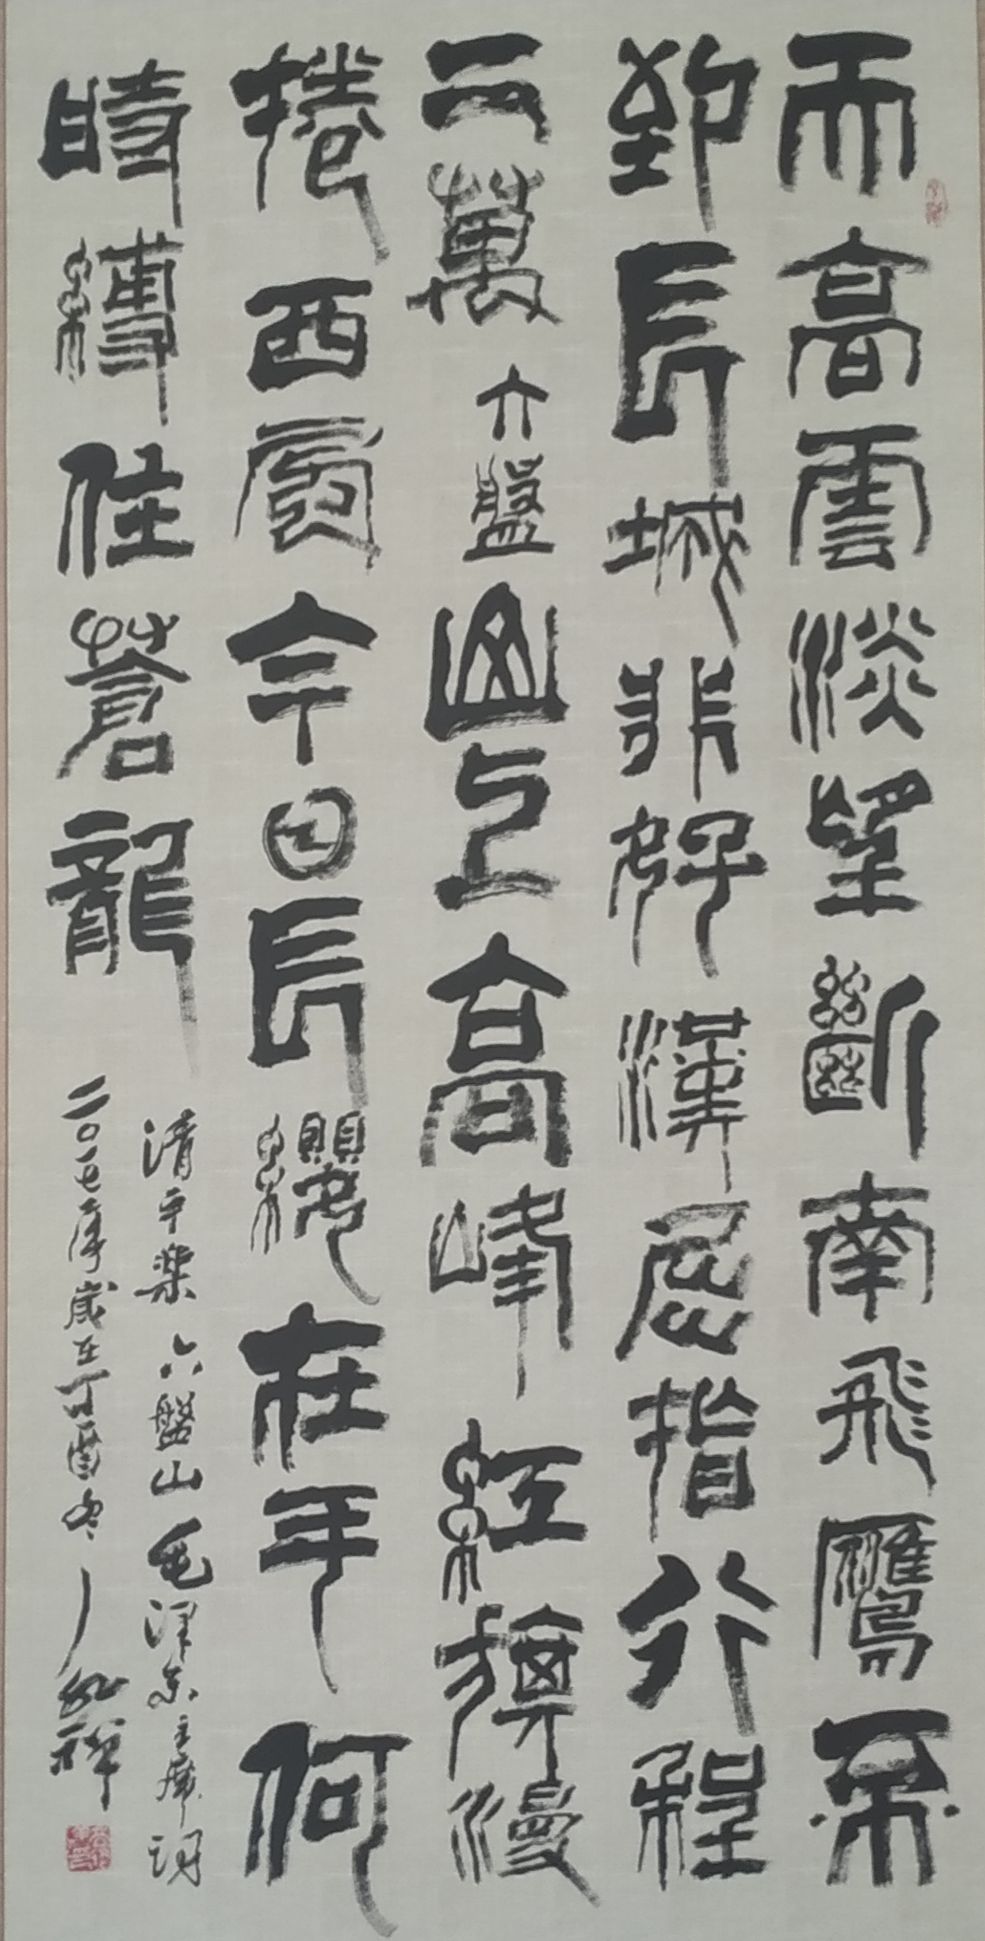 天高雲淡望斷南飛鷹不
到長城非好漢屈指行程
二萬六盤山上高峰紅旗漫
捲西風今日長纓在手何
時縛住蒼龍
清平樂 六盤山 毛澤东主席詞
二〇一七年歲在丁酉冬